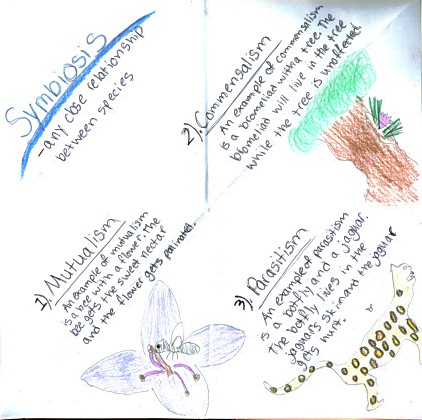 Symbiosis
-any close relationship
between species
2). Commensalism
is An example of commensalism
is a bromeliad with a tree. The
bromeliad will live in the tree
while the tree is unaffected.
1). Mutualism
An example of mutualism
is a bee with a flower. The
bee gets the sweet nectar
and the flower gets polinated.
3). Parasitism
is An example of parasitism
is a botfly and a jaguar.
The botfly lives in the
jaguars skin and the jaguar
gets hurt.